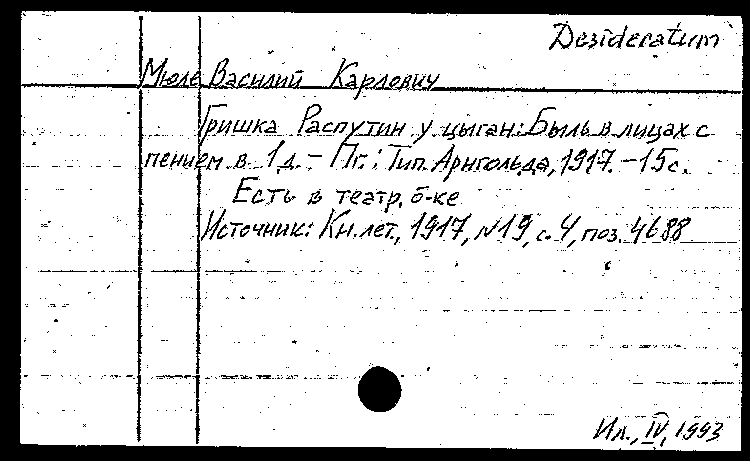 Desideratum
Мюле Василий Карлович
Гришка Распутин у цыган: Быль в лицах с
пением в 1 д. – Пг.: Тип. Арнгольда, 1917. – 15 с.
Есть в театр. б-ке
Источник: Кн. лет., 1917, №19, с. 4, поз. 4688
Ил., IV, 1993